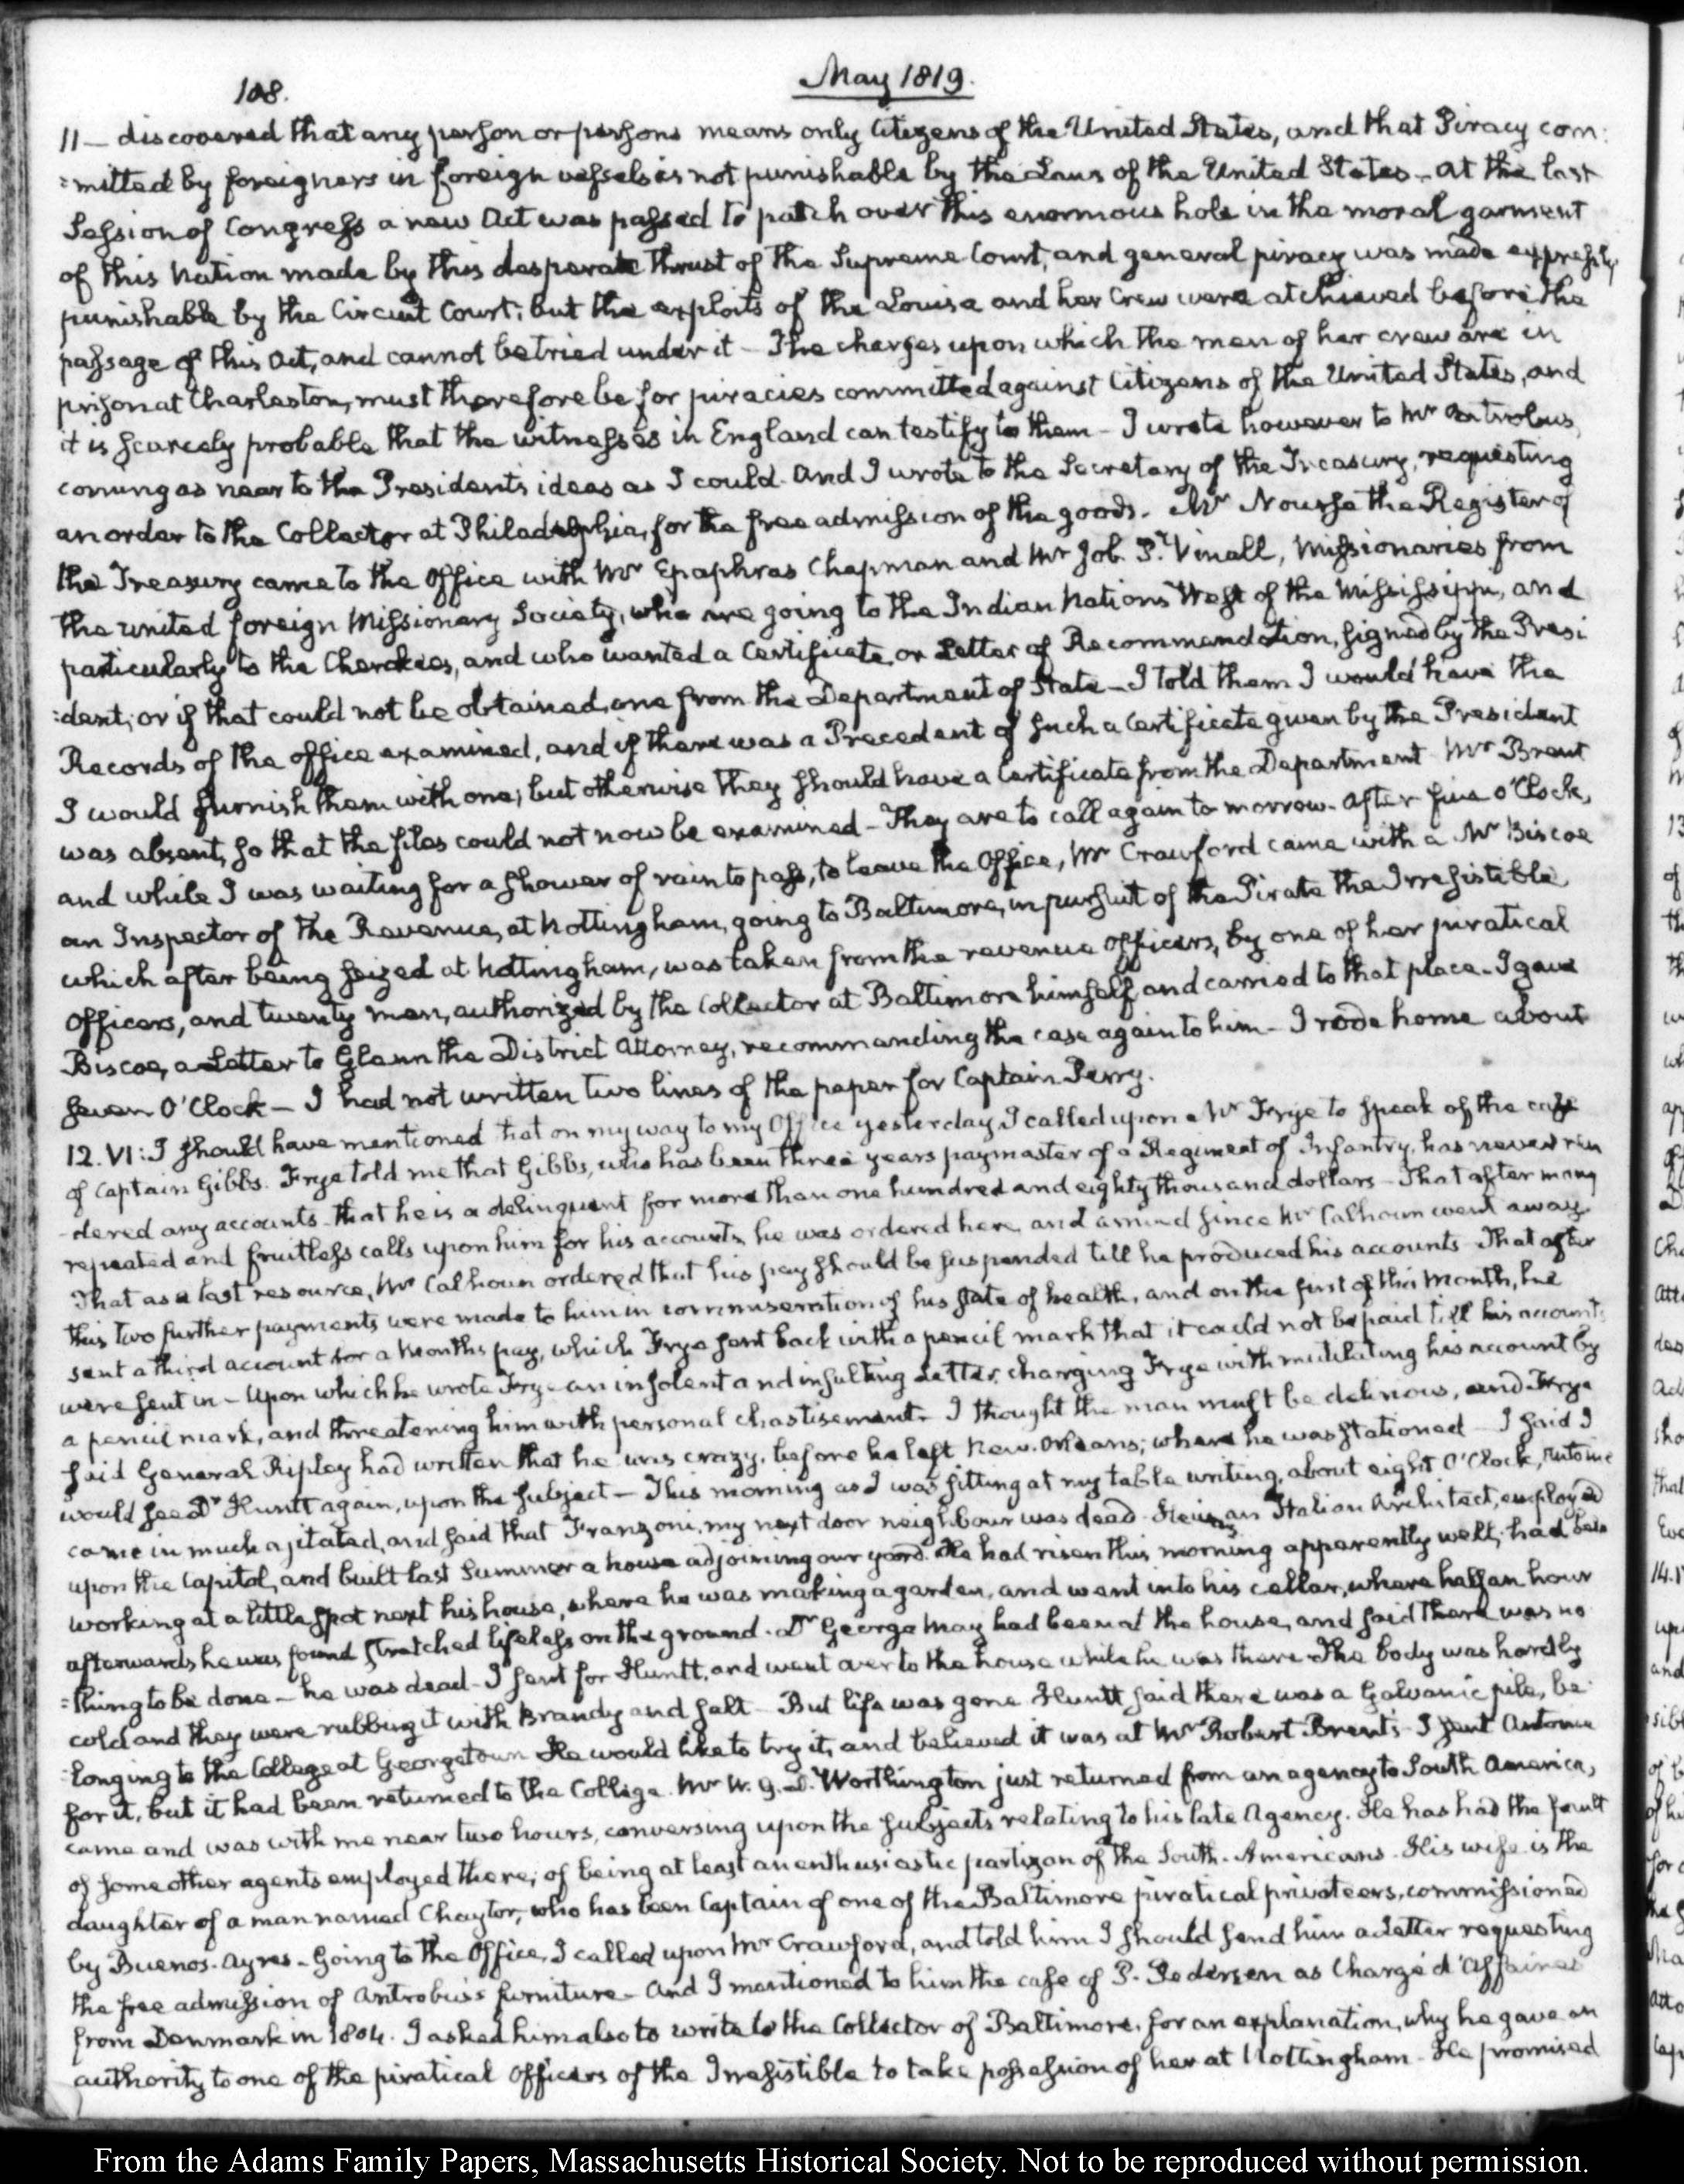 108.
May 1819.
11 — discovered that any person or persons means only Citizens of the United States, and that Piracy com:
:mitted by foreigners in foreign vessels is not punishable by the Laws of the United States — At the last
Session of Congress a new Act was passed to patch over this enormous hole in the moral garment
of this Nation made by this desperate thrust of the Supreme Court, and general piracy was made expressly
punishable by the Circuit Court; but the exploits of the Louisa and her Crew were atchieved before the
passage of this Act, and cannot be tried under it — The charges upon which the men of her crew are in
prison at Charleston, must therefore be for piracies committed against Citizens of the United States, and
it is scarcely probable that the witnesses in England can testify to them — I wrote however to Mr Antrobus,
coming as near to the President's ideas as I could. And I wrote to the Secretary of the Treasury, requesting
an order to the Collector at Philadelphia, for the free admission of the goods. Mr Nourse the Register of
the Treasury came to the Office with Mr Epaphras Chapman and Mr Job P. Vinall, Missionaries from
the United foreign Missionary Society, who are going to the Indian Nations West of the Mississippi, and
particularly to the Cherokees, and who wanted a Certificate, or Letter of Recommendation, signed by the Presi
:dent; or if that could not be obtained, one from the Department of State — I told them I would have the
Records of the office examined, and if there was a Precedent of such a Certificate given by the President
I would furnish them with one; but otherwise they should have a Certificate from the Department Mr Brent
was absent, so that the files could not now be examined — They are to call again to morrow. After five O'Clock,
and while I was waiting for a shower of rain to pass, to leave the Office, Mr Crawford came with a Mr Biscoe
an Inspector of the Revenue, at Nottingham, going to Baltimore, in pursuit of the Pirate the Irresistible,
which after being seized at Nottingham, was taken from the revenue Officers, by one of her piratical
Officers, and twenty men, authorized by the Collector at Baltimore himself, and carried to that place. I gave
Biscoe, a Letter to Glenn the District Attorney, recommending the case again to him — I rode home about
seven O'Clock — I had not written two lines of the paper for Captain Perry.
12. VI: I should have mentioned that on my way to my Office yesterday, I called upon Mr Frye to speak of the case
of Captain Gibbs. Frye told me that Gibbs, who has been three years paymaster of a Regiment of Infantry, has never ren
-dered any accounts — that he is a delinquent for more than one hundred and eighty thousand dollars — That after many
repeated and fruitless calls upon him for his accounts, he was ordered here, and arrived since Mr Calhoun went away.
That as a last resource, Mr Calhoun ordered that his pay should be suspended till he produced his accounts That after
this two further payments were made to him in commiseration of his state of health, and on the first of this Month, he
sent a third account for a Months pay, which Frye sent back with a pencil mark that it could not be paid till his accounts
were sent in — Upon which he wrote Frye an insolent and insulting Letter, charging Frye with mutilating his account by
a pencil mark, and threatening him with personal chastisement — I thought the man must be delirious, and Frye
said General Ripley had written that he was crazy, before he left New-Orleans; where he was stationed — I said I
would see Dr Huntt again, upon the subject — This morning as I was sitting at my table writing, about eight O'Clock, Antoine
came in much agitated, and said that Franzoni, my next door neighbour was dead. He was an Italian Architect, employed
upon the Capitol, and built last Summer a house adjoining our yard. He had risen this morning apparently well; had been
working at a little spot next his house, where he was making a garden, and went into his cellar, where half an hour
afterwards he was found stretched lifeless on the ground. Dr George May had been at the house, and said there was no
:thing to be done — he was dead — I sent for Huntt, and went over to the house while he was there. The body was hardly
cold and they were rubbing it with Brandy and salt — But life was gone. Huntt said there was a Galvanic pile, be
:longing to the College at Georgetown He would like to try it, and believed it was at Mr Robert Brent's. I sent Antoine
for it, but it had been returned to the College. Mr W. G. D. Worthington just returned from an agency to South America,
came and was with me near two hours, conversing upon the subjects relating to his late Agency. He has had the fault
of some other agents employed there, of being at least an enthusiastic partizan of the South-Americans. His wife is the
daughter of a man named Chaytor, who has been Captain of one of the Baltimore piratical privateers, commissioned
by Buenos-Ayres — Going to the Office, I called upon Mr Crawford, and told him I should send him a Letter requesting
the free admission of Antrobus's furniture — And I mentioned to him the case of P. Pedersen as Chargé d'Affaires
from Denmark in 1804. I asked him also to write to the Collector of Baltimore, for an explanation, why he gave an
authority to one of the piratical Officers of the Irresistible to take possession of her at Nottingham — He promised
From the Adams Family Papers, Massachusetts Historical Society. Not to be reproduced without permission.